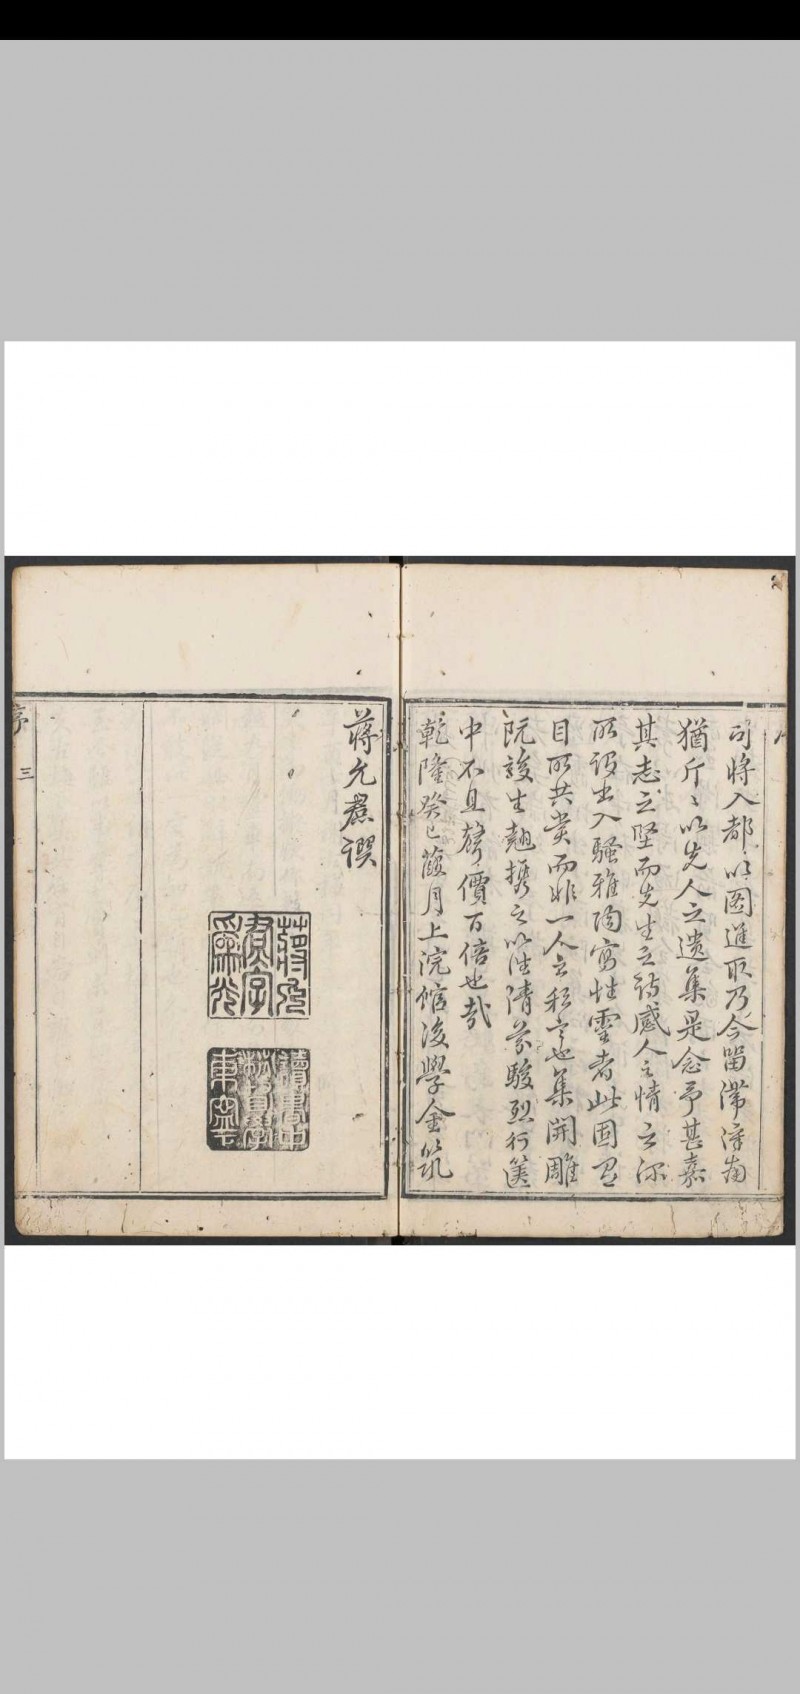 司將入都以圖進取乃今畱滯
猶斤〻以先人之遺集是念予甚嘉
其志之堅而先生之詩感人之情之深
所謂出入騷雅陶寫性靈者此固耳
目所共賞而非一人之私言也集開雕
既竣生翹携之以往清芬駿烈行篋
中不且聲價百倍也哉
乾隆癸巳葭月上浣館後學金筑
蔣允焄譔
蔣允
焄字
爲光
讀書中
序
三